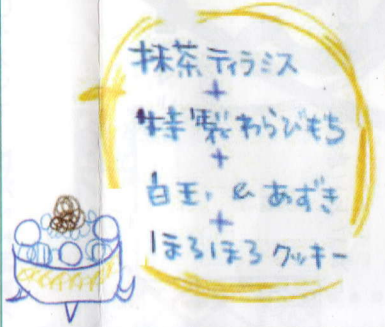 抹茶ティラミス
+
特製わらびもち
+
白玉 & あずき
+
ほろほろクッキー